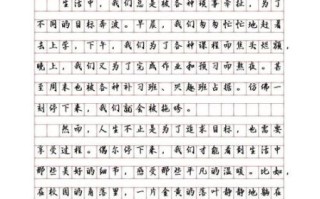 生活中，我们总是被各种琐事牵扯，为了
不同的目标奔波。早晨，我们匆匆忙忙地赶着
去上学，下午，我们为了各种课程而焦头烂额，
晚上，我们又为了完成作业和预习而熬夜。甚
至周末也被各种补习班、兴趣班占据。仿佛一
刻停下来，我们就会被拖垮。
然而，人生不止是为了追求目标，也需要
享受过程。偶尔停下来，我们才能看到生活中
那些美好的细节，感受那些平凡的温暖。比如，
在校园的角落里，一片金黄的落叶静静地躺在